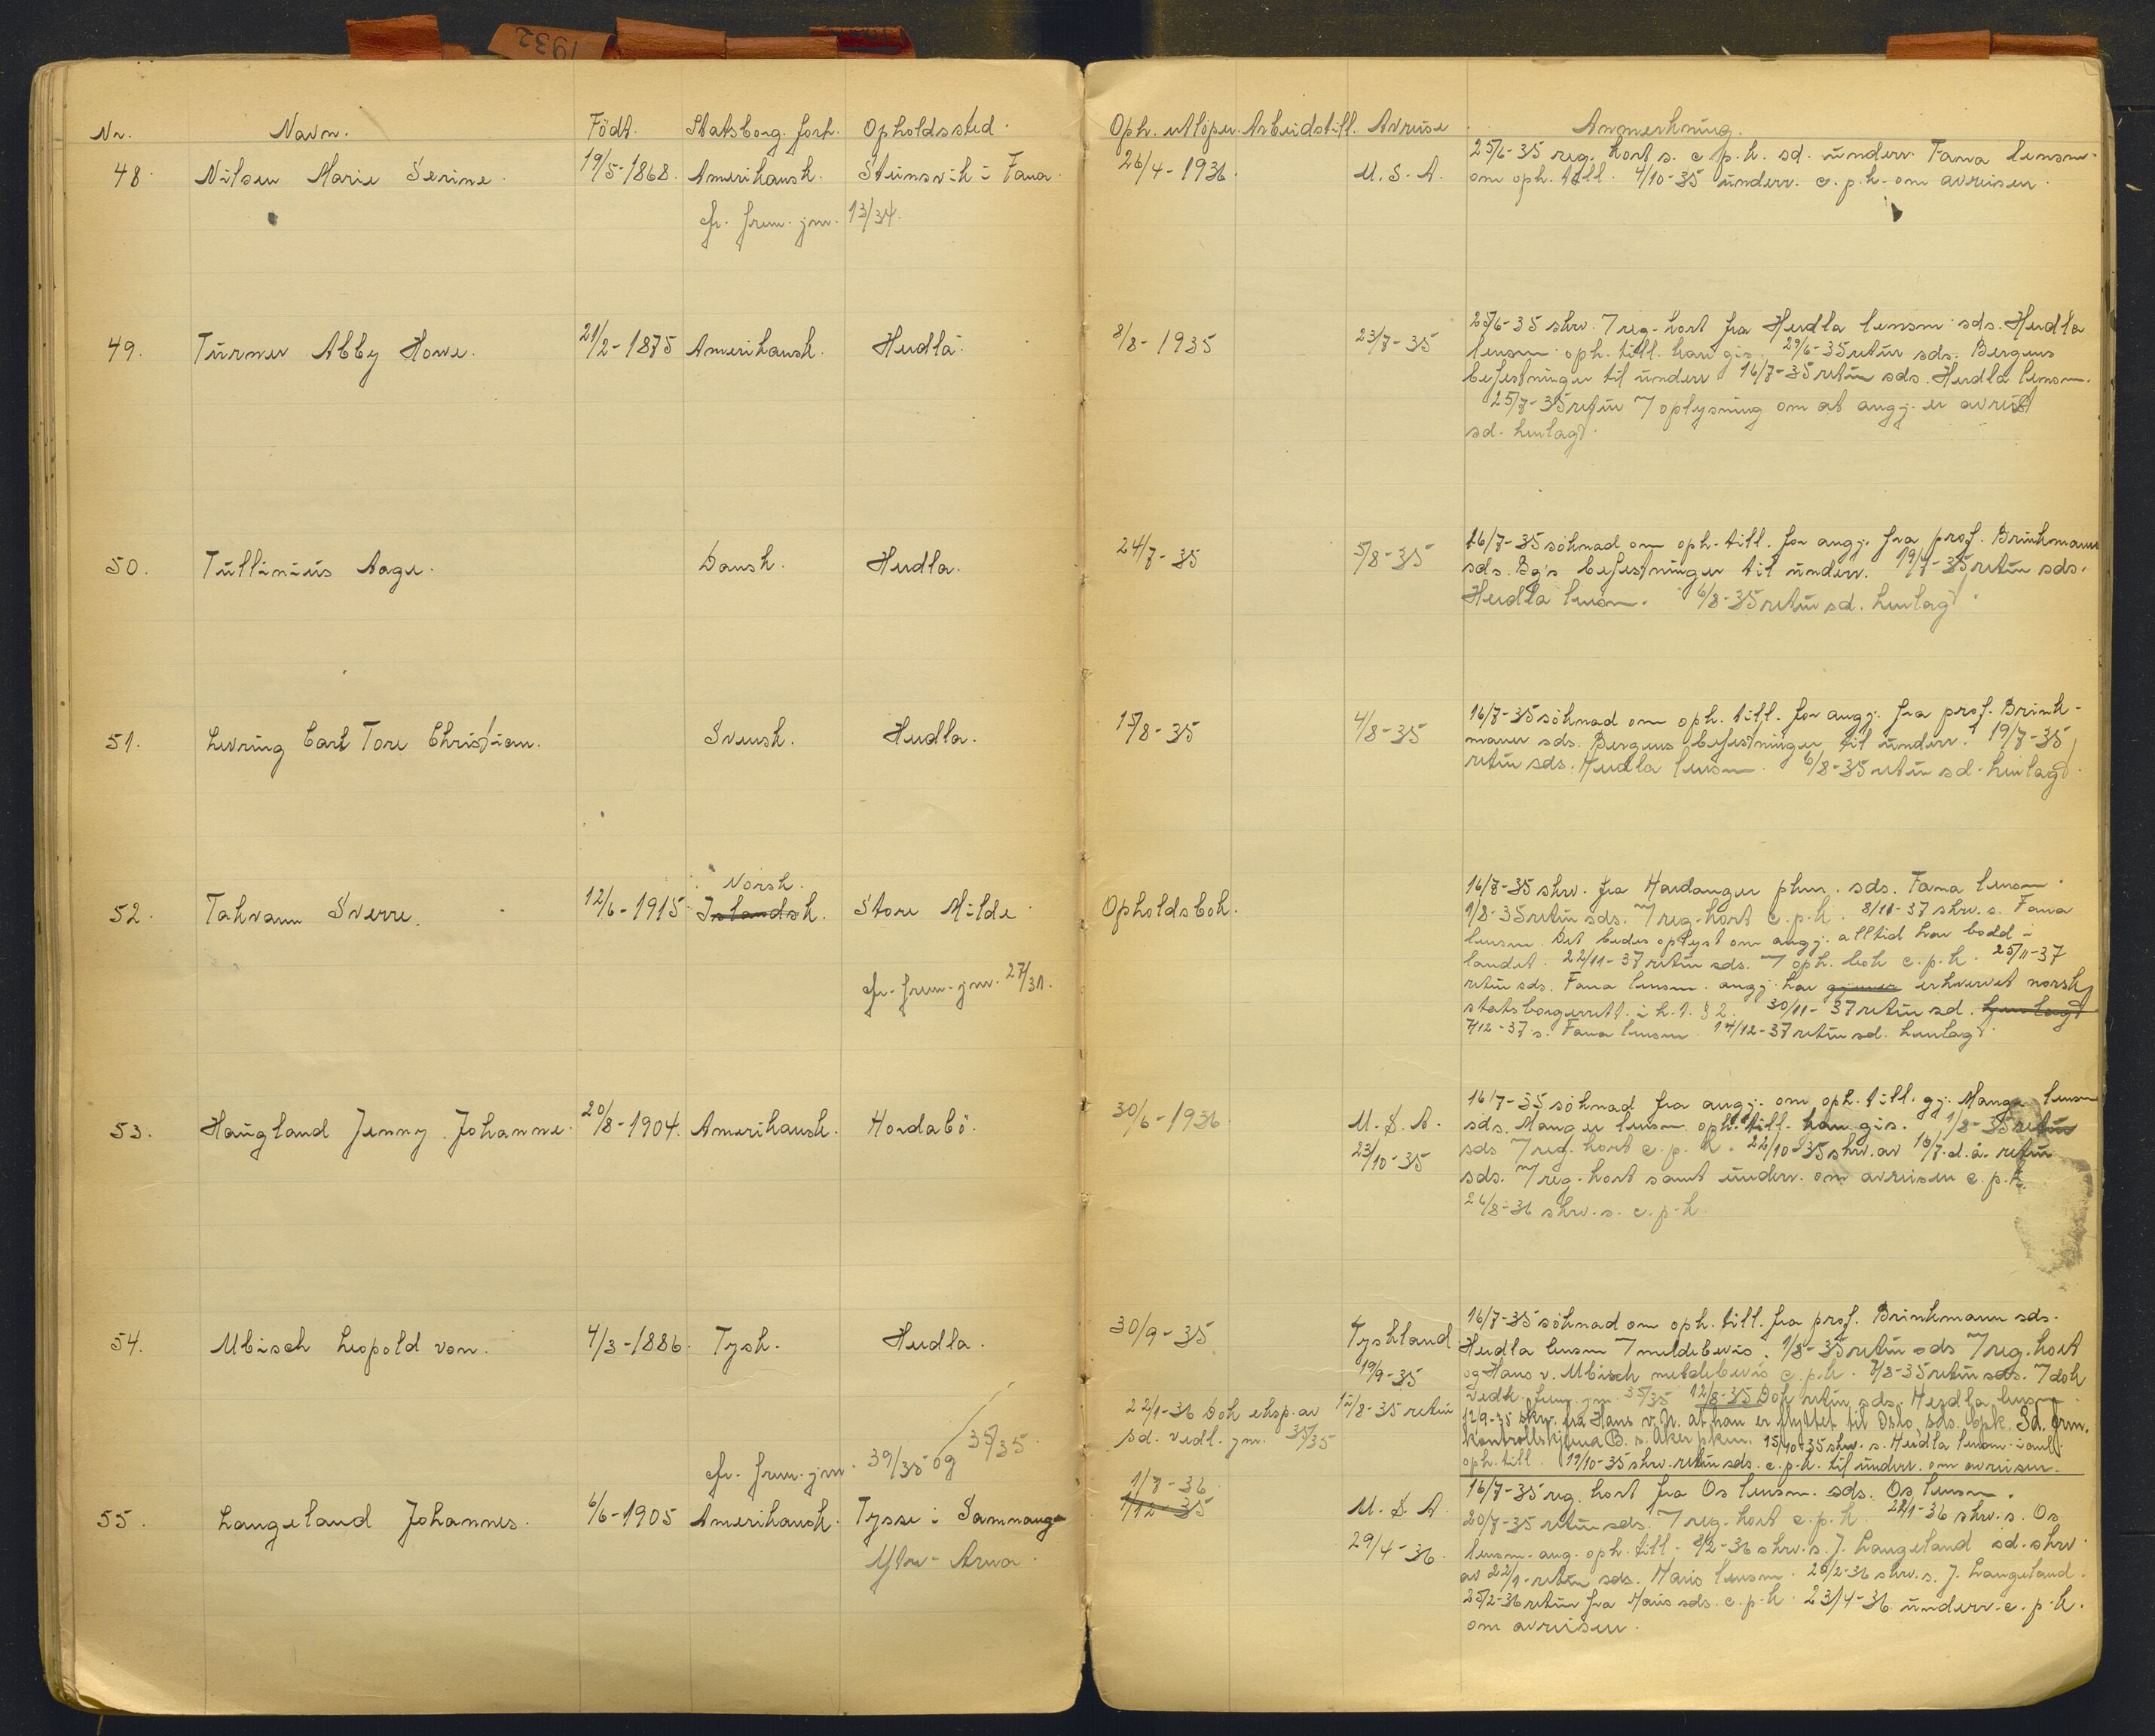 1932
Nr. Navn. Födt. Statsborg. forh. Opholdssted. Oph. utlöper. Arbeidstill. Avreise. Anmerkning.
48. Nilsen Marie Serine. 19/5-1868. Amerikansk. Steinsvik i Fana. 26/4-1936. U.S.A. 25/6-35 reg. kort s. c.p.k. sd. underr. Fana lensm.
om oph. till. 4/10-35 underr. c.p.k. om avreisen.
cfr. frem. jnr. 13/34.
49. Turner Abby Howe. 21/2-1875 Amerikansk. Herdla. 8/8-1935 23/7-35 25/6-35 skrv. 7 reg. kort fra Herdla lensm. sds. Herdla
lensm. oph. till. kan gis. 29/6-35 retur sds. Bergens
befestninger til underr. 16/7-35 retur sds. Herdla lensm.
25/7-35 retur 7 oplysning om at angj. er avreist
sd. henlagt.
50. Tullinius Aage. Dansk. Herdla. 24/7-35 5/8-35 16/7-35 söknad om oph. till. for angj. fra prof. Brinkmann
sds. Bg's befestninger til underr. 19/7-35 retur sds.
Herdla lensm. 6/8-35 retur sd. henlagt.
51. Levring Carl Tore Christian. Svensk. Herdla. 15/8-35 4/8-35 16/7-35 söknad om oph. till. for angj. fra prof. Brink-
mann sds. Bergens befestninger til underr. 19/7-35
retur sds. Herdla lensm. 6/8-35 retur sd. henlagt.
Norsk.
52. Takvam Sverre. 12/6-1915. Islandsk. Store Milde Opholdsbok. 16/7-35 skrv. fra Hardanger pkm. sds. Fana lensm.
1/8-35 retur sds. 7 reg. kort c.p.k. 8/11-37 skrv. s. Fana
lensm. Det bedes oplyst om angj. alltid har bodd i
landet. 22/11-37 retur sds. 7 oph. bok c.p.k. 25/11-37
cfr. frem. jnr. 27/31.
retur sds. Fana lensm. angj. har erhvervet norsk
statsborgerrett i h.t. § 2. 30/11-37 retur sd. henlagt
7/12-37 s. Fana lensm. 14/12-37 retur sd. henlagt.
53. Haugland Jenny Johanne. 20/8-1904. Amerikansk. Hordabö. 30/6-1936 U.S.A. 23/10-35 16/7-35 söknad fra angj. om oph. till. gj. Manger lensm
sds. Manger lensm. oph. till. kan gis. 1/8-35 retur
sds 7 reg. kort c.p.k. 22/10-35 skrv. av 16/7 d.å. retur
sds. 7 reg. kort samt underr. om avreisen c.p.k.
26/8-36 skrv. s. c.p.k.
54. Ubisch Leopold von. 4/3-1886. Tysk. Herdla. 30/9-35 Tyskland 19/9-35 16/7-35 söknad om oph. till. fra prof. Brinkmann sds.
Herdla lensm 7 meldebevis. 1/8-35 retur sds 7 reg. kort
og Hans v. Ubisch meldebevis c.p.k. 7/8-35 retur sds. 7 dok
vedk. frem. jnr. 35/35 12/8-35 Dok retur sds. Herdla lensm.
22/1-36 Dok eksp. av sd. vedl. jnr. 35/35 12/8-35 retur
12/9-35 skrv. fra Hans v. U. at han er flyttet til Oslo, sds. Opk. Sd. frm.
kontrollskjema B. s. Aker pkm. 15/10-35 skrv. s. Herdla lensm. i anl.
oph. till. 19/10-35 skrv. retur sds. c.p.k. til underr. om avreisen.
cfr. frem. jnr. 39/35 og 35/35.
55. Langeland Johannes. 6/6-1905 Amerikansk. Tysse i Samnanger 1/7-36 1/12-35 U.S.A. 29/4-36. 16/7-35 reg. kort fra Os lensm. sds. Os lensm.
20/7-35 retur sds. 7 reg. kort c.p.k. 22/1-36 skrv. s. Os
Ytre-Arna.
lensm. ang. oph. till. 8/2-36 skrv. s. J. Langeland sd. skrv.
av 22/1 retur sds. Haus lensm. 20/2-36 skrv. s. J. Langeland.
25/2-36 retur fra Haus sds. c.p.k. 23/4-36 underr. c.p.k.
om avreisen.